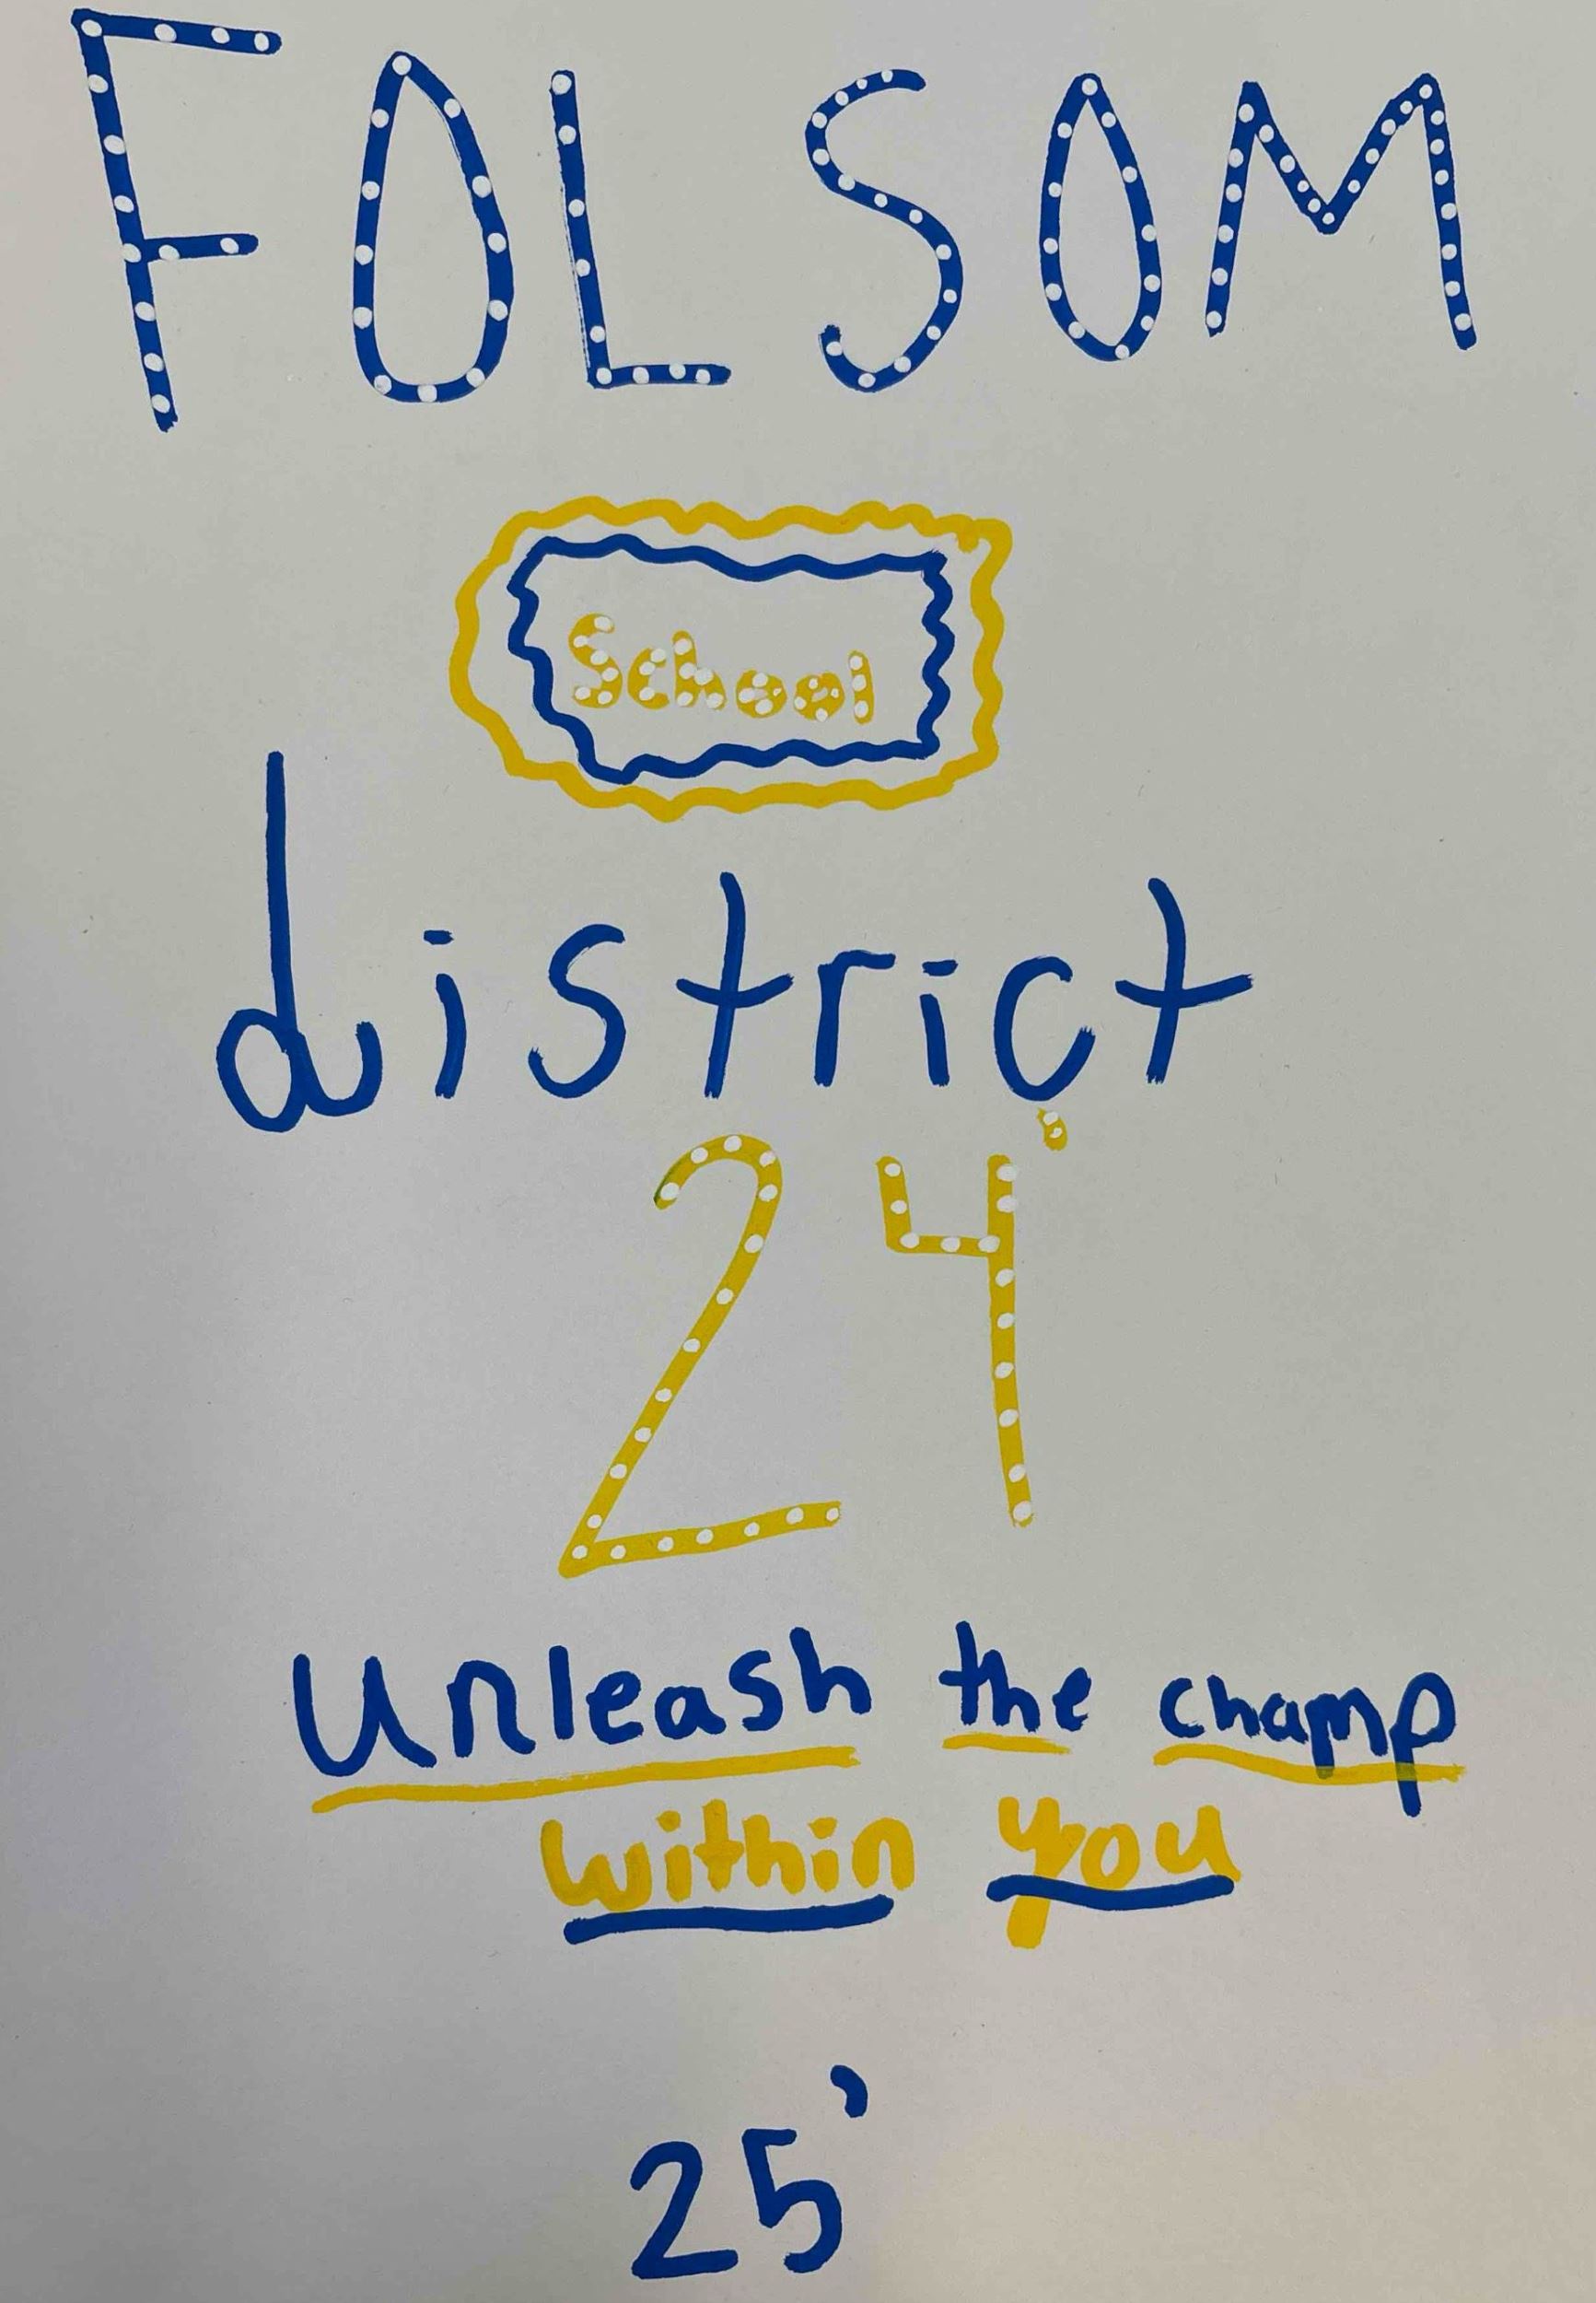 FOLSOM
School
district
24'
Unleash the champ
within you
25'